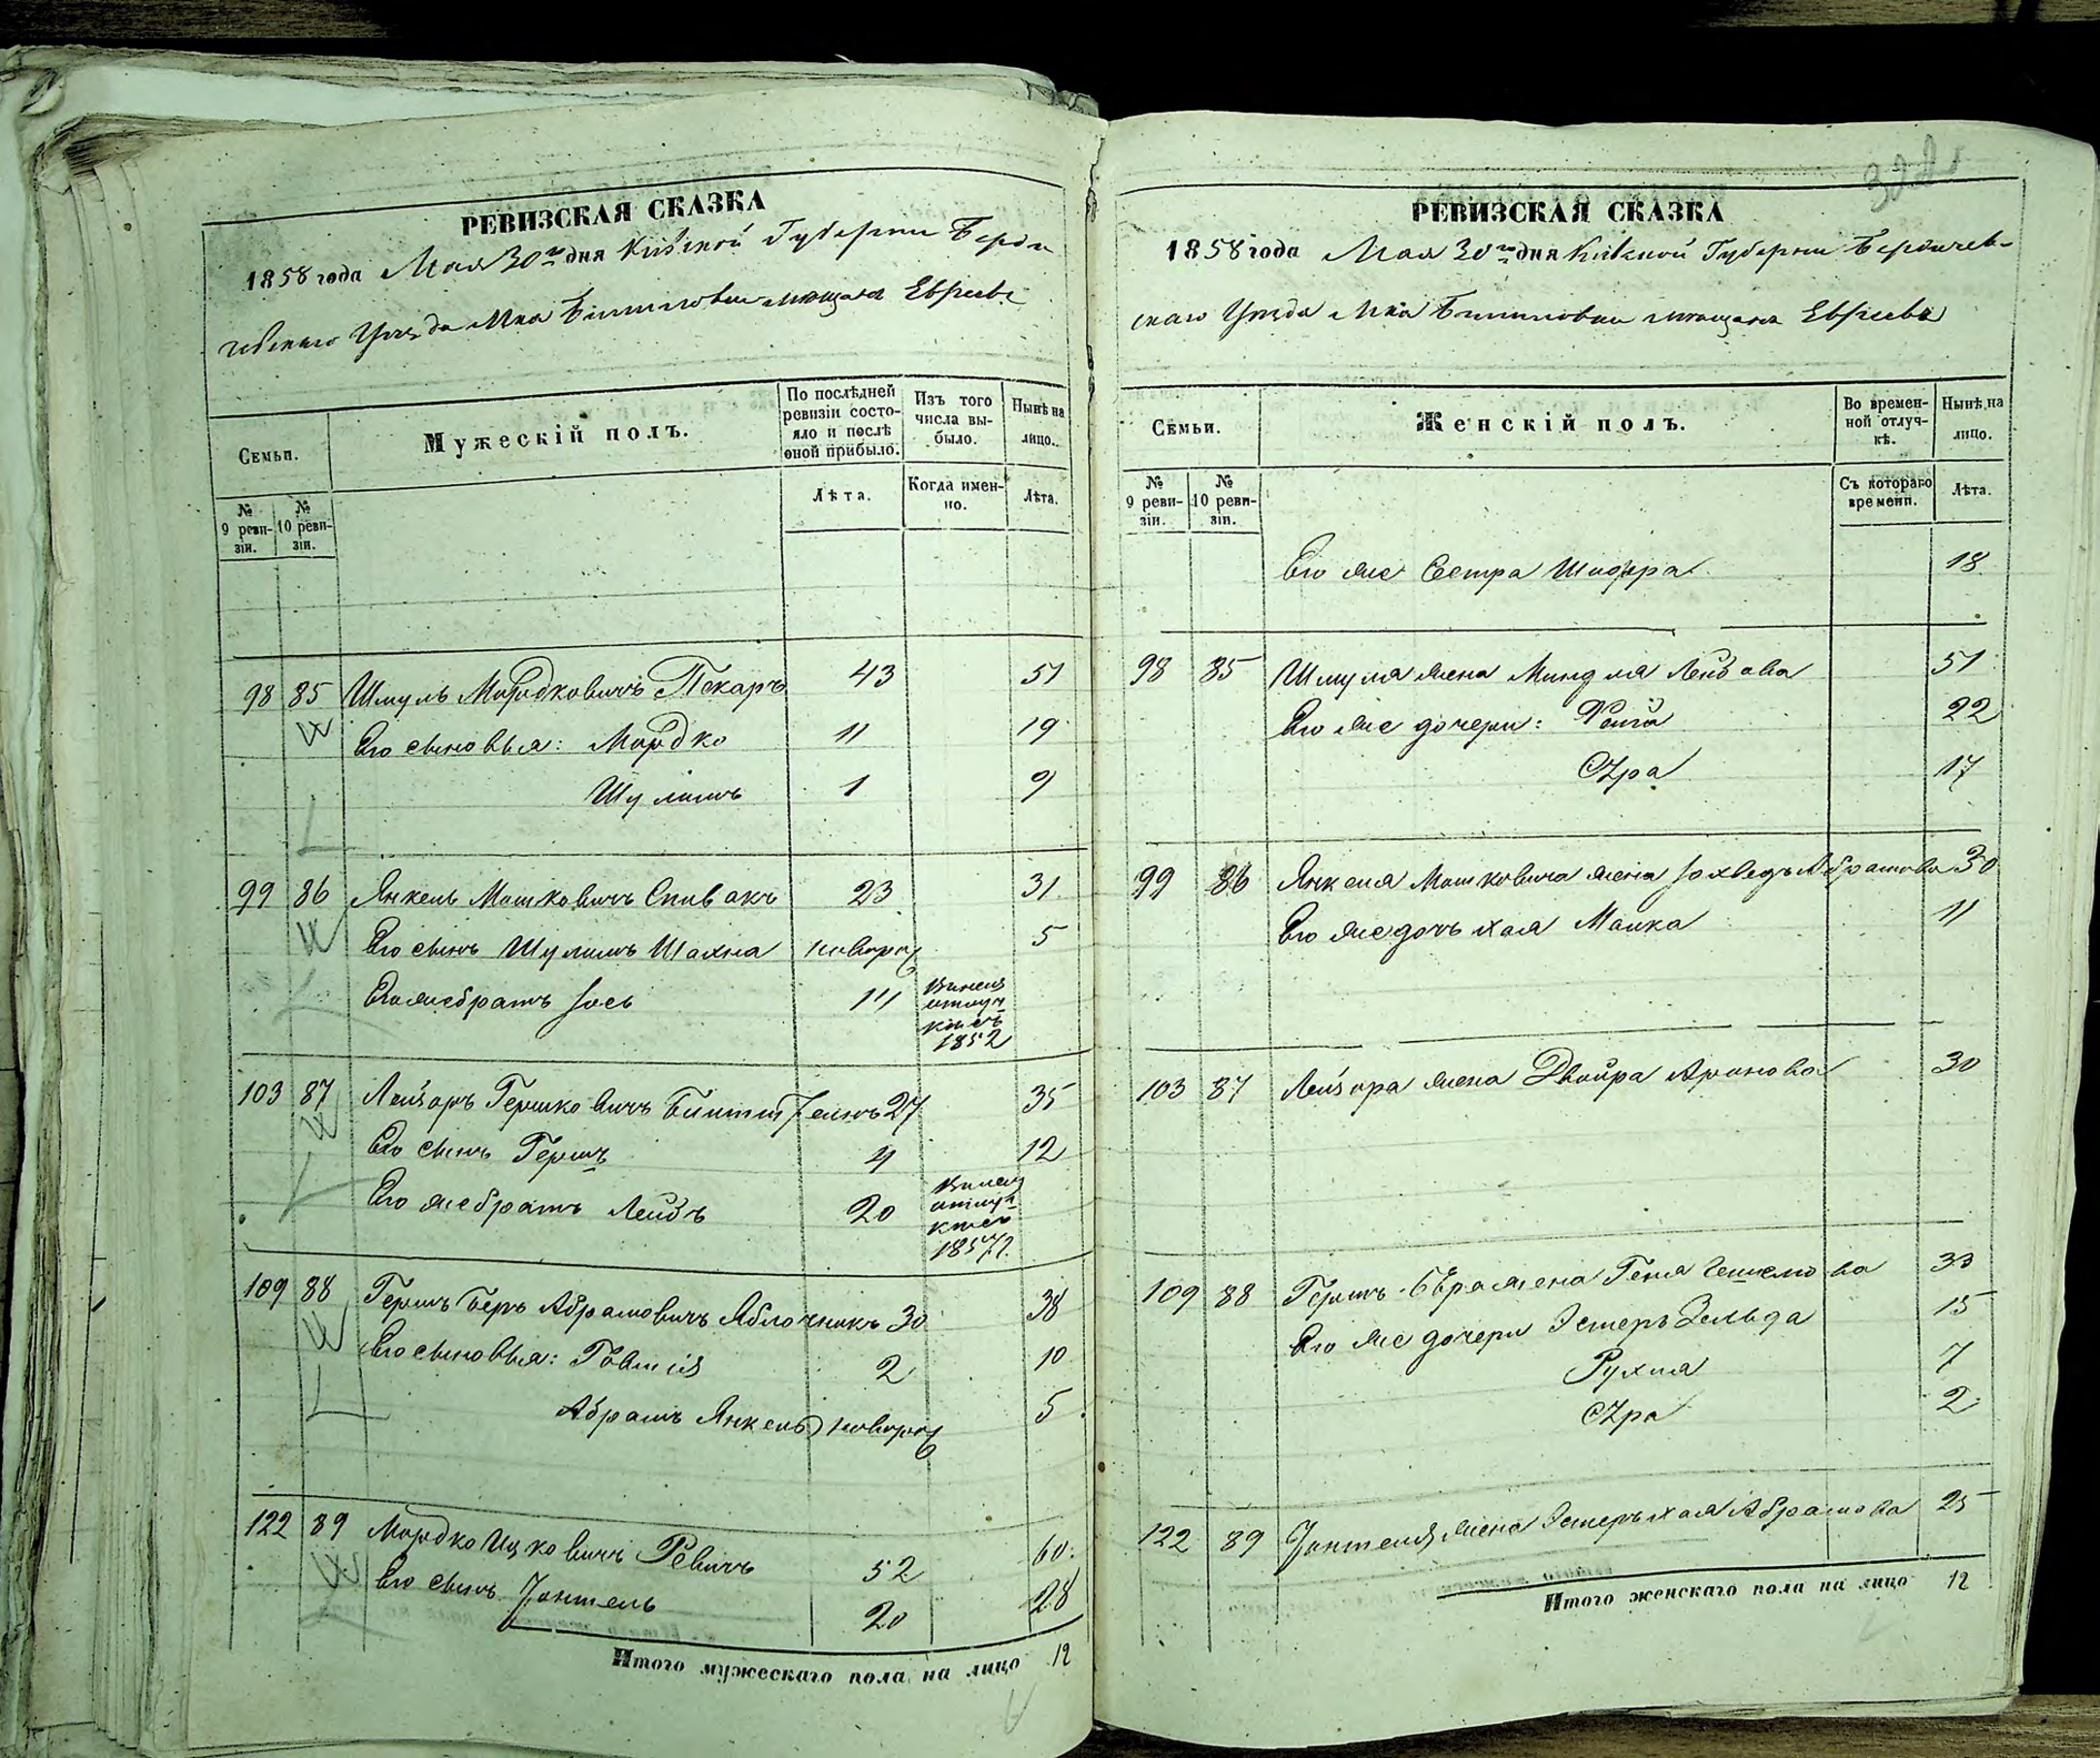 РЕВИЗСКАЯ СКАЗКА
1858 года Мая 30го дня Кіевской Губерніи Берди
чевскаго Уѣзда Мка мѣщанъ Евреевъ
Семьи.
Мужескій полъ.
По послѣдней ревизіи состо-
яло и послѣ
оной прибыло.
Изъ того
числа вы-
было.
Нынѣ на
лицо.
№
9 реви-
зіи.
№
10 реви-
зіи.
Лѣта.
Когда имен-
но.
Лѣта.
98 85 Шмуль Мордковичъ Пекаръ 43 51
Его сыновья: Мордко 11 19
Шулимъ 1 9
99 86 Янкель Мошковичъ Спивакъ 23 31
Его сынъ Шулимъ Шахна новорож 5
Его же братъ Іось 14
1852
103 87 Лейзоръ Гершковичъ 27 35
Его сынъ Гершъ 4 12
Его же братъ Лейбъ 20
1857 г.
109 88 Гершъ Беръ Абрамовичъ Яблочникъ 30 38
Его сыновья: 2 10
Абрамъ Янкель новорож 5
122 89 Мордко Ицковичъ Ревичъ 52 60
Его сынъ 20 28
Итого мужескаго пола на лицо 12
322
РЕВИЗСКАЯ СКАЗКА
1858 года Мая 30го дня Кіевской Губерніи Бердичев-
скаго Уѣзда Мка мѣщанъ Евреевъ
Семьи.
Женскій полъ.
Во времен-
ной отлуч-
кѣ.
Нынѣ на
лицо.
№
9 реви-
зіи.
№
10 реви-
зіи.
Съ котораго
времени.
Лѣта.
Его же Сестра Шифра 18
98 85 Шмуля жена Миндля Лейбова 51
Его же дочери: Фейга 22
Сура 17
99 86 Янкеля Мошковича жена Іохведъ Абрамова 30
Его же дочь Хая Малка 11
103 87 Лейзора жена Двойра Аронова 30
109 88 Гершъ-Бера жена Геня 33
Его же дочери Эстеръ Зельда 15
Рухля 7
Сура 2
122 89 жена Эстеръ Хая Абрамова 25
Итого женскаго пола на лицо 12